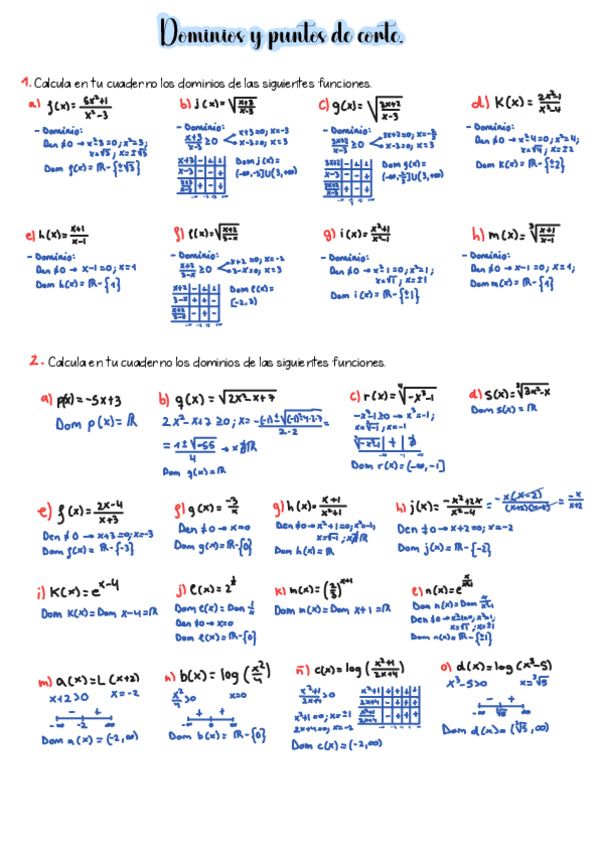 Dominios y puntos de corte.
1. Calcula en tu cuaderno los dominios de las siguientes funciones.
a) f(x) = (5x²+1)/(x²-3)
- Dominio:
Den ≠0 → x²-3=0; x²=3;
x=√3; x=±√3
Dom f(x) = ℝ-{±√3}
b) j(x) = √((x+3)/(x-3))
- Dominio:
(x+3)/(x-3) ≥0
x+3=0; x=-3
x-3=0; x=3
Dom j(x)=
(-∞,-3]∪(3,+∞)
c) g(x) = √((3x+2)/(x-3))
- Dominio:
x-3=0; x=3
Dom g(x)=
d) K(x) = (2x²-1)/(x²-4)
- Dominio:
Den ≠0 → x²-4=0; x²=4;
x=√4; x=±2
Dom K(x) = ℝ-{±2}
e) h(x) = (x+1)/(x-1)
- Dominio:
Den ≠0 → x-1=0; x=1
Dom h(x) = ℝ-{1}
f) l(x) = √((x+2)/(3-x))
- Dominio:
(x+2)/(3-x) ≥0
x+2=0; x=-2
3-x=0; x=3
Dom l(x)=
[-2,3)
g) i(x) = (x²+1)/(x²-1)
- Dominio:
Den ≠0 → x²-1=0; x²=1;
x=√1; x=±1
Dom i(x) = ℝ-{±1}
h) m(x) = ³√((x+1)/(x-1))
- Dominio:
Den ≠0 → x-1=0; x=1;
Dom m(x) = ℝ-{1}
2. Calcula en tu cuaderno los dominios de las siguientes funciones.
a) p(x) = -5x+3
Dom p(x) = ℝ
b) q(x) = √(2x²-x+7)
2x²-x+7≥0; x= (-(-1)±√((-1)²-4·2·7))/(2·2) =
= (1±√-55)/4 → x∄ℝ
Dom q(x)=ℝ
c) r(x) = ⁴√(-x³-1)
-x³-1≥0 → x³=-1;
x=³√-1; x=-1
Dom r(x) = (-∞,-1]
d) s(x) = ³√(3x²-x)
Dom s(x) = ℝ
e) f(x) = (2x-4)/(x+3)
Den ≠0 → x+3=0; x=-3
Dom f(x) = ℝ-{-3}
f) g(x) = -3/x
Den ≠0 → x=0
Dom g(x)=ℝ-{0}
g) h(x) = (x+1)/(x²+1)
Den ≠0 → x²+1=0; x²=-1;
x=√-1; x∄ℝ
Dom h(x)=ℝ
h) j(x) = (-x²+2x)/(x²-4) = -x(x-2)/((x+2)(x-2)) = -x/(x+2)
Den ≠0 → x+2=0; x=-2
Dom j(x) = ℝ-{-2}
i) K(x) = e^(x-4)
Dom K(x) = Dom x-4=ℝ
j) l(x) = 2^(1/x)
Dom l(x) = Dom 1/x
Den ≠0 → x=0
Dom l(x) = ℝ-{0}
k) m(x) = (2/3)^(x+1)
Dom m(x) = Dom x+1=ℝ
l) n(x) = e^(x/(x²-1))
Dom n(x) = Dom x/(x²-1)
Den ≠0 → x²-1=0; x²=1;
x=√1; x=±1
Dom n(x) = ℝ-{±1}
m) a(x) = L(x+2)
x+2>0 x=-2
- +
-∞ -2 ∞
Dom a(x) = (-2,∞)
n) b(x) = log(x²/4)
x²/4 >0 x=0
+ +
-∞ 0 ∞
Dom b(x) = ℝ-{0}
ñ) c(x) = log((x²+1)/(2x+4))
(x²+1)/(2x+4) >0
x²+1=0; x=±1
2x+4=0; x=-2
Dom c(x) = (-2,∞)
o) d(x) = log(x³-5)
x³-5>0 x=³√5
- +
-∞ ³√5 ∞
Dom d(x) = (³√5,∞)